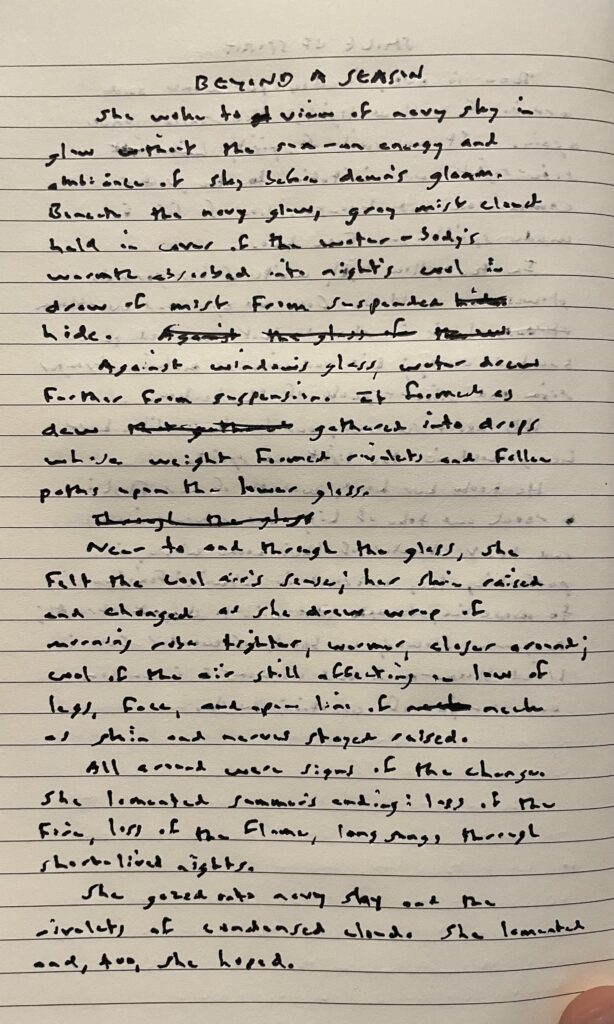 BEYOND A SEASON
She woke to view of navy sky in
glow without the sun-on energy and
ambiance of sky before dawn's gleam.
Beneath the navy glow, gray mist cloud
held in cover of the water-body's
warmth absorbed into night's cool in
draw of mist from suspended
hide. Against the glass of
Against window's glass, water drew
further from suspension. It formed as
dew that gathered gathered into drops
whose weight formed rivulets and fallen
paths upon the lower glass.
Through the glass
Near to and through the glass, she
felt the cool air's sense; her skin, raised
and changed as she drew wrap of
morning robe tighter, warmer, closer around;
cool of the air still affecting on low of
legs, face, and upon line of neck
as skin and nerves stayed raised.
All around were signs of the change.
She lamented summer's ending: loss of the
fire, loss of the flame, long songs through
short-lived nights.
She gazed onto navy sky and the
rivulets of condensed cloud. She lamented
and, too, she hoped.